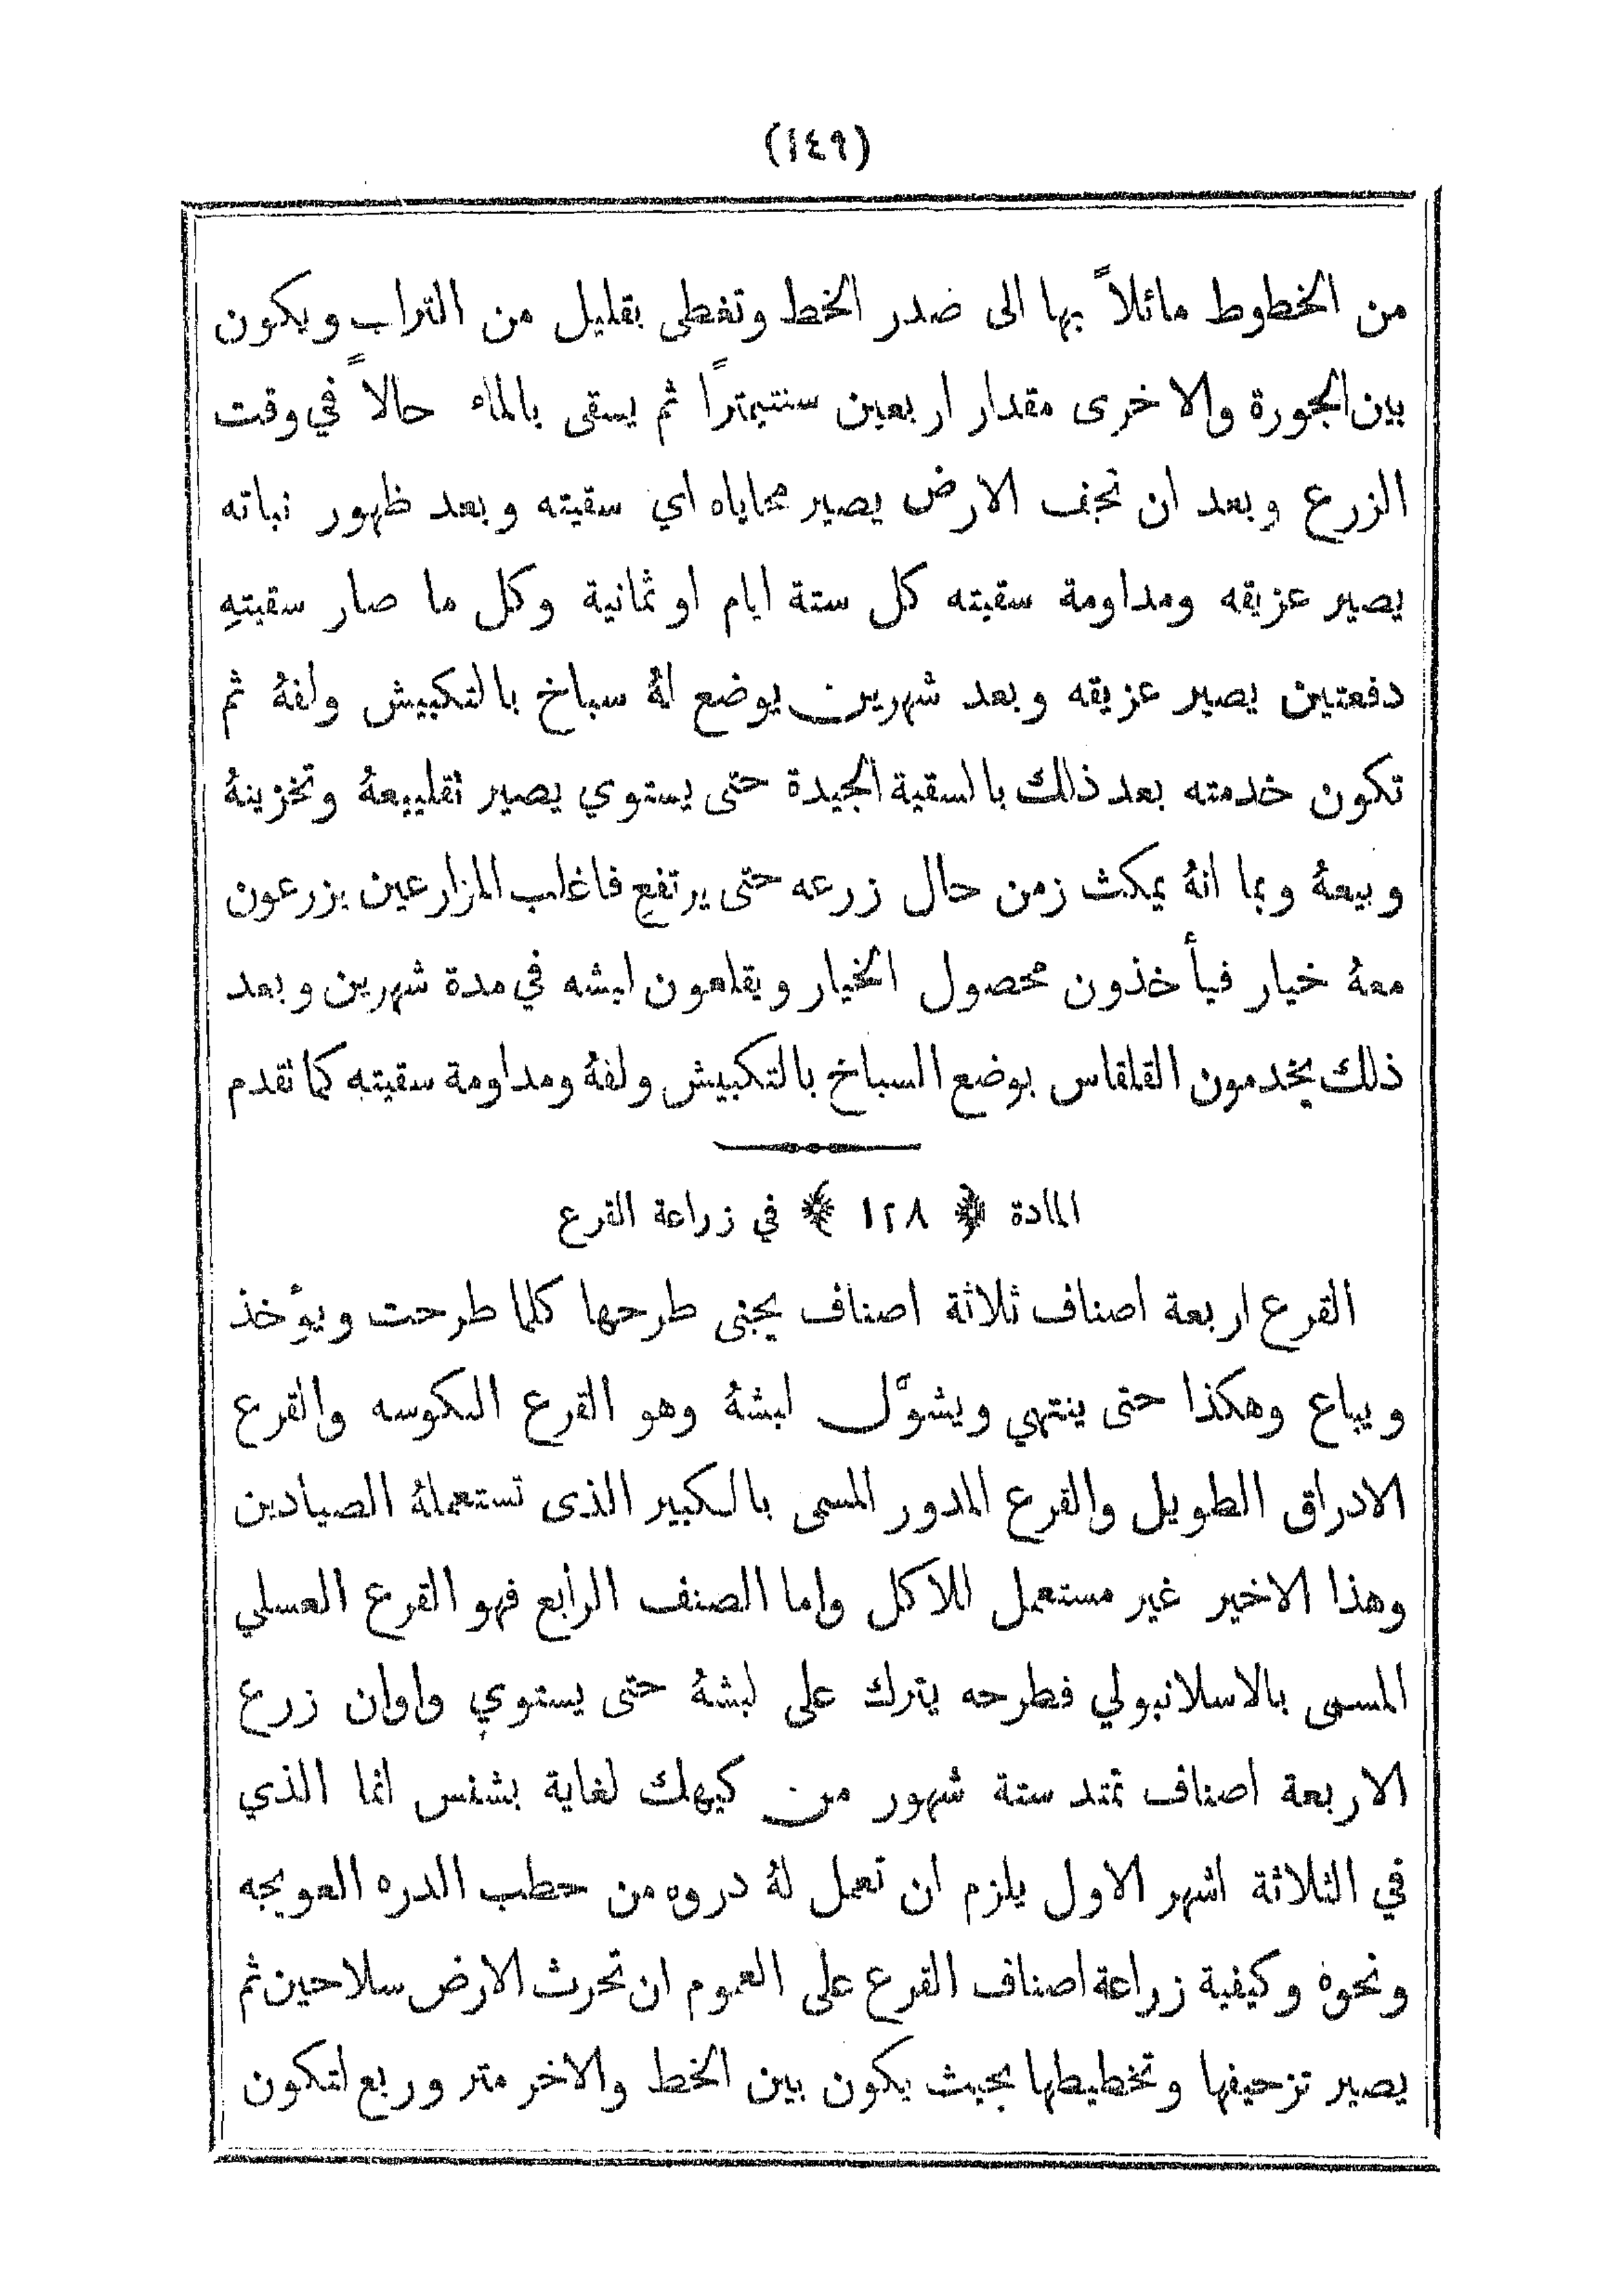 (١٤٩)
من الخطوط مائلاً بها الى صدر الخط وتغطى بقليل من التراب ويكون
بين الجورة والاخرى مقدار اربعين سنتيمترًا ثم يسقى بالماء حالاً في وقت
الزرع وبعد ان تجف الارض يصير محاياه اي سقيته وبعد ظهور نباته
يصير عزيقه ومداومة سقيته كل ستة ايام او ثمانية وكل ما صار سقيتهِ
دفعتين يصير عزيقه وبعد شهرين يوضع لهُ سباخ بالتكبيش ولفهُ ثم
تكون خدمته بعد ذلك بالسقية الجيدة حتى يستوي يصير تقليعهُ وتخزينهُ
وبيعهُ وبما انهُ يمكث زمن حال زرعه حتى يرتفع فاغلب المزارعين يزرعون
معهُ خيار فيأخذون محصول الخيار ويقلعون لبشه في مدة شهرين وبعد
ذلك يخدمون القلقاس بوضع السباخ بالتكبيش ولفهُ ومداومة سقيته كما تقدم
المادة ﴿ ١٢٨ ﴾ في زراعة القرع
القرع اربعة اصناف ثلاثة اصناف يجنى طرحها كلما طرحت ويؤخذ
ويباع وهكذا حتى ينتهي ويشوّل لبشهُ وهو القرع الكوسه والقرع
الادراق الطويل والقرع المدور المسمى بالكبير الذى تستعملهُ الصيادين
وهذا الاخير غير مستعمل للاكل واما الصنف الرابع فهو القرع العسلي
المسمى بالاسلانبولي فطرحه يترك على لبشهُ حتى يستوي واوان زرع
الاربعة اصناف تمتد ستة شهور من كيهك لغاية بشنس انما الذي
في الثلاثة اشهر الاول يلزم ان تعمل لهُ دروه من حطب الدره العويجه
ونحوه وكيفية زراعة اصناف القرع على العموم ان تحرث الارض سلاحين ثم
يصير تزحيفها وتخطيطها بحيث يكون بين الخط والاخر متر وربع لتكون